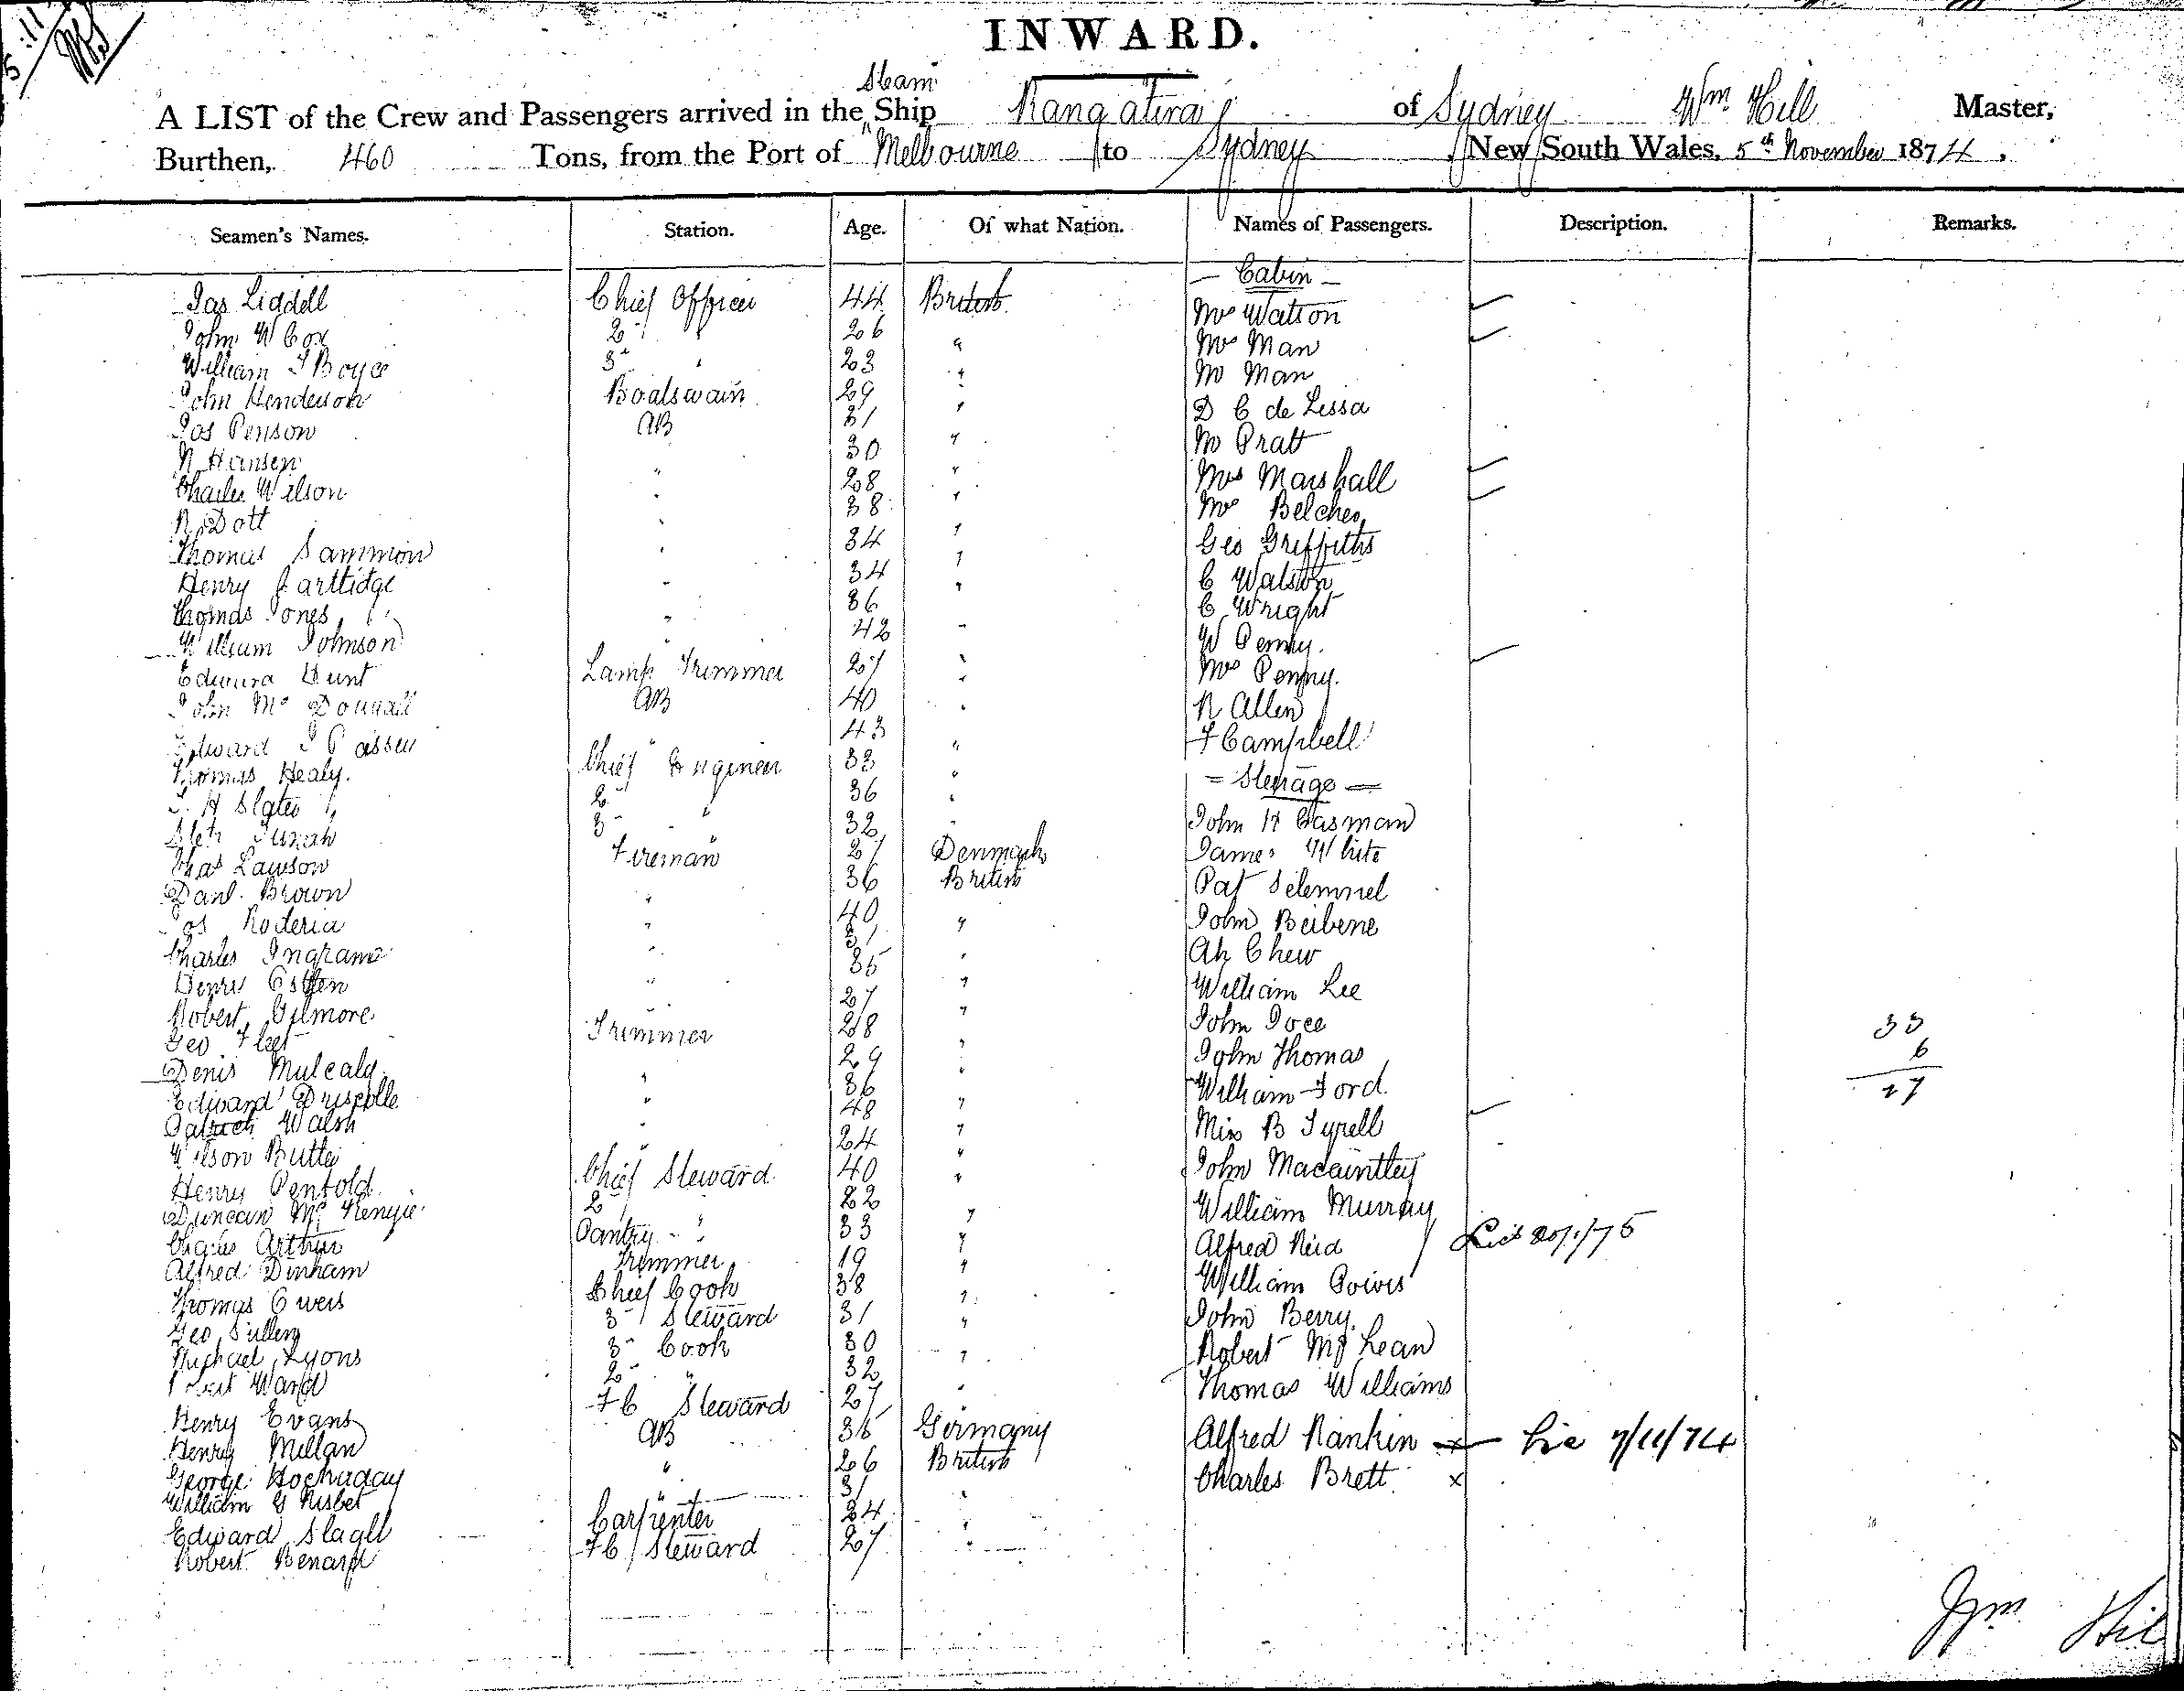 5.11
INWARD.
Steam
A LIST of the Crew and Passengers arrived in the Ship Rangatira of Sydney Wm Hill Master,
Burthen, 460 Tons, from the Port of Melbourne to Sydney New South Wales, 5th November 1874,
Seamen's Names. Station. Age. Of what Nation. Names of Passengers. Description. Remarks.
— Cabin —
Jas Liddell Chief Officer 44 British Mrs Watson
John W Cox 2 " 26 " Mrs Man
William J Boyce 3 " 23 " Mr Man
John Henderson Boatswain 29 " D C de Lissa
Jos Penson AB 31 " Mr Pratt
N Hansen " 30 " Mrs Marshall
Charles Wilson " 28 " Mrs Belcher
R Dott " 38 " Geo Griffiths
Thomas Sammon " 34 " C Watson
Henry Parttidge " 34 " C Wright
Thomas Jones " 36 " W Penny.
William Johnson " 42 " Mrs Penny.
Edward Hunt Lamp Trimmer 27 " R Allen
John Mc AB 40 " F Campbell
Edward J 43 "
Thomas Healy. Chief Engineer 33 " = Steerage =
J. H Slater 2 " 36 " John H Gasman
3 " 32 " James White
Chas Lawson Fireman 27 Denmark Pat
Danl. Brown " 36 British John Beibene
Jos Roderia " 40 " Ah Chew
Charles Ingrams " 31 " William Lee
Henry " 35 " John Joce
Robert Gilmore " 27 " John Thomas
Geo Fleet Trimmer 28 " William Ford.
Denis Mulcaly " 29 " Miss B Tyrell
Edward Driscolle " 36 " John Macauntley
Patrick Walsh " 48 " William Murray
Wilson Butler " 24 " Alfred Reid
Henry Penfold Chief Steward 40 " William
Duncan Mc Kenzie 2 " 22 " John Berry.
Charles Arthur Pantry " 33 " Robert Mc Lean
Alfred Dinham Trimmer 19 " Thomas Williams
Thomas Owers Chief Cook 38 " Alfred Rankin x Lic 7/11/74
Geo Sullen 3 Steward 31 " Charles Brett x
Michael Lyons 3 Cook 30 "
Ward 2 " 32 "
Henry Evans FC Steward 27 "
Henry Millan AB 35 Germany
George Hockaday " 26 British
William G Nisbet " 31 "
Edward Slagll Carpenter 24 "
Robert Benard FC Steward 27 "
33
6
27
Wm Hil